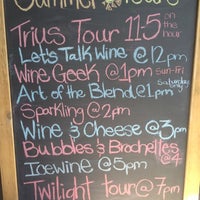 Summer Tours
Trius Tour 11-5 on the hour
Let's Talk Wine @ 12pm
Wine Geek @ 1pm Sun-Fri
Art of the Blend @ 1pm Saturday only
Sparkling @ 2pm
Wine & Cheese @ 3pm
Bubbles & Brochettes @ 4
Icewine @ 5pm
Twilight tour @ 7pm